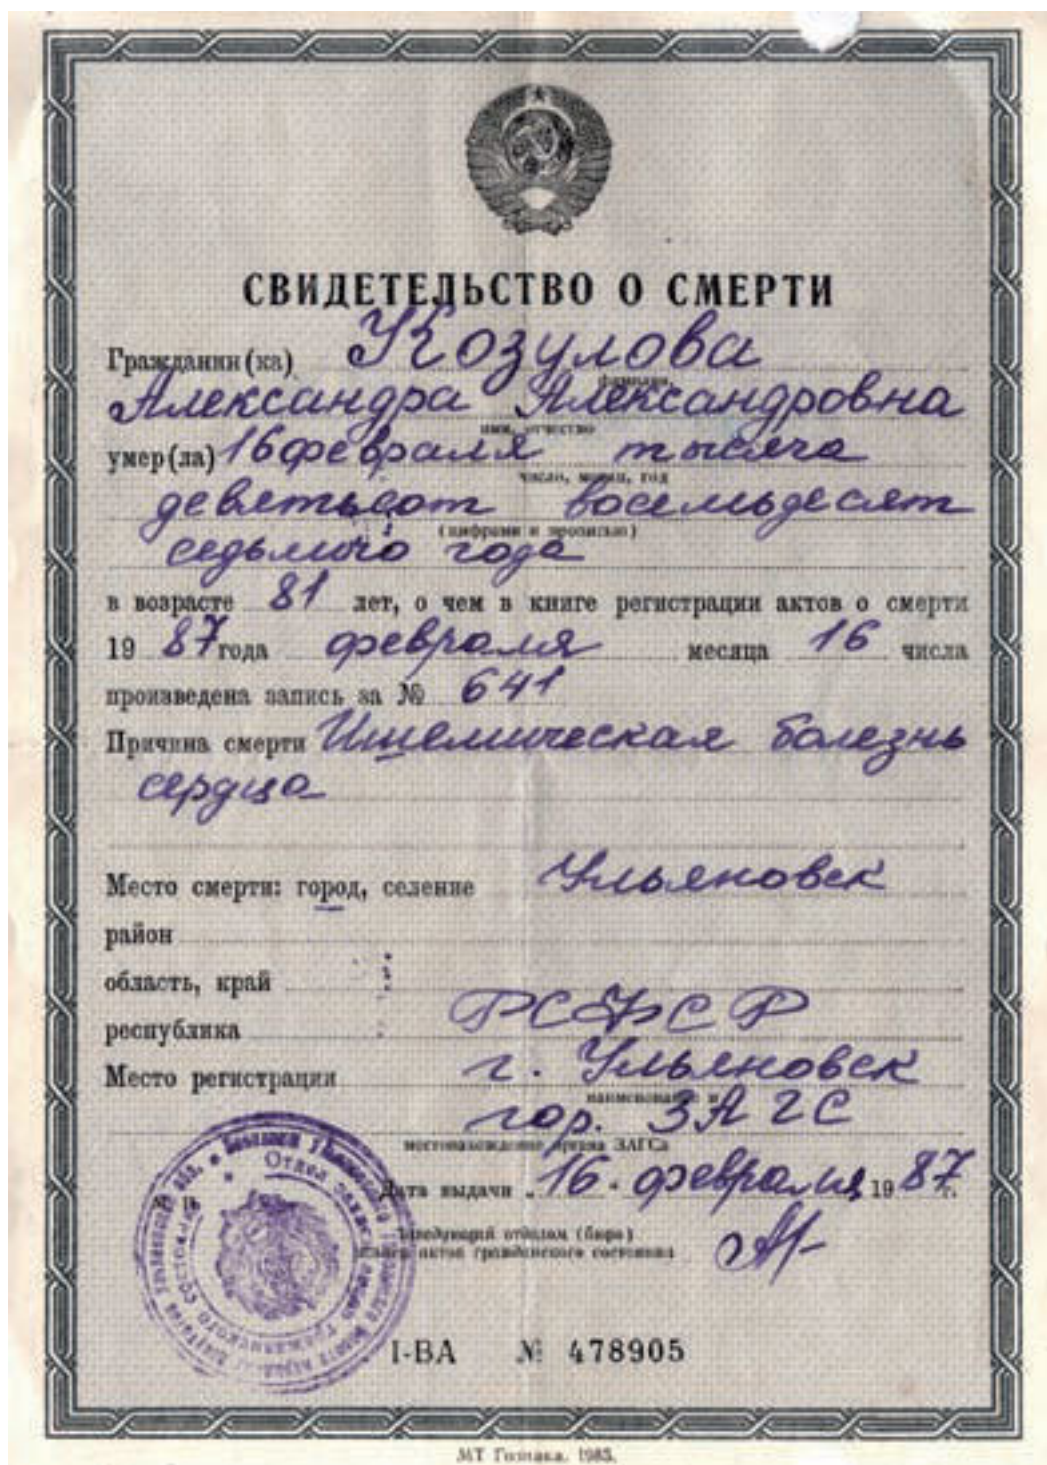 СВИДЕТЕЛЬСТВО О СМЕРТИ
Гражданин (ка) Козулова
фамилия,
Александра Александровна
имя, отчество
умер(ла) 16 февраля тысяча
число, месяц, год
девятьсот восемьдесят
(цифрами и прописью)
седьмого года
в возрасте 81 лет, о чем в книге регистрации актов о смерти
19 87 года февраля месяца 16 числа
произведена запись за № 641
Причина смерти Ишемическая болезнь
сердца
Место смерти: город, селение Ульяновск
район
область, край
республика РСФСР
Место регистрации г. Ульяновск
наименование и
гор. ЗАГС
местонахождение органа ЗАГСа
Дата выдачи 16 февраля 19 87 г.
Заведующий отделом (бюро)
записи актов гражданского состояния
I-ВА № 478905
МТ Гознака. 1983.